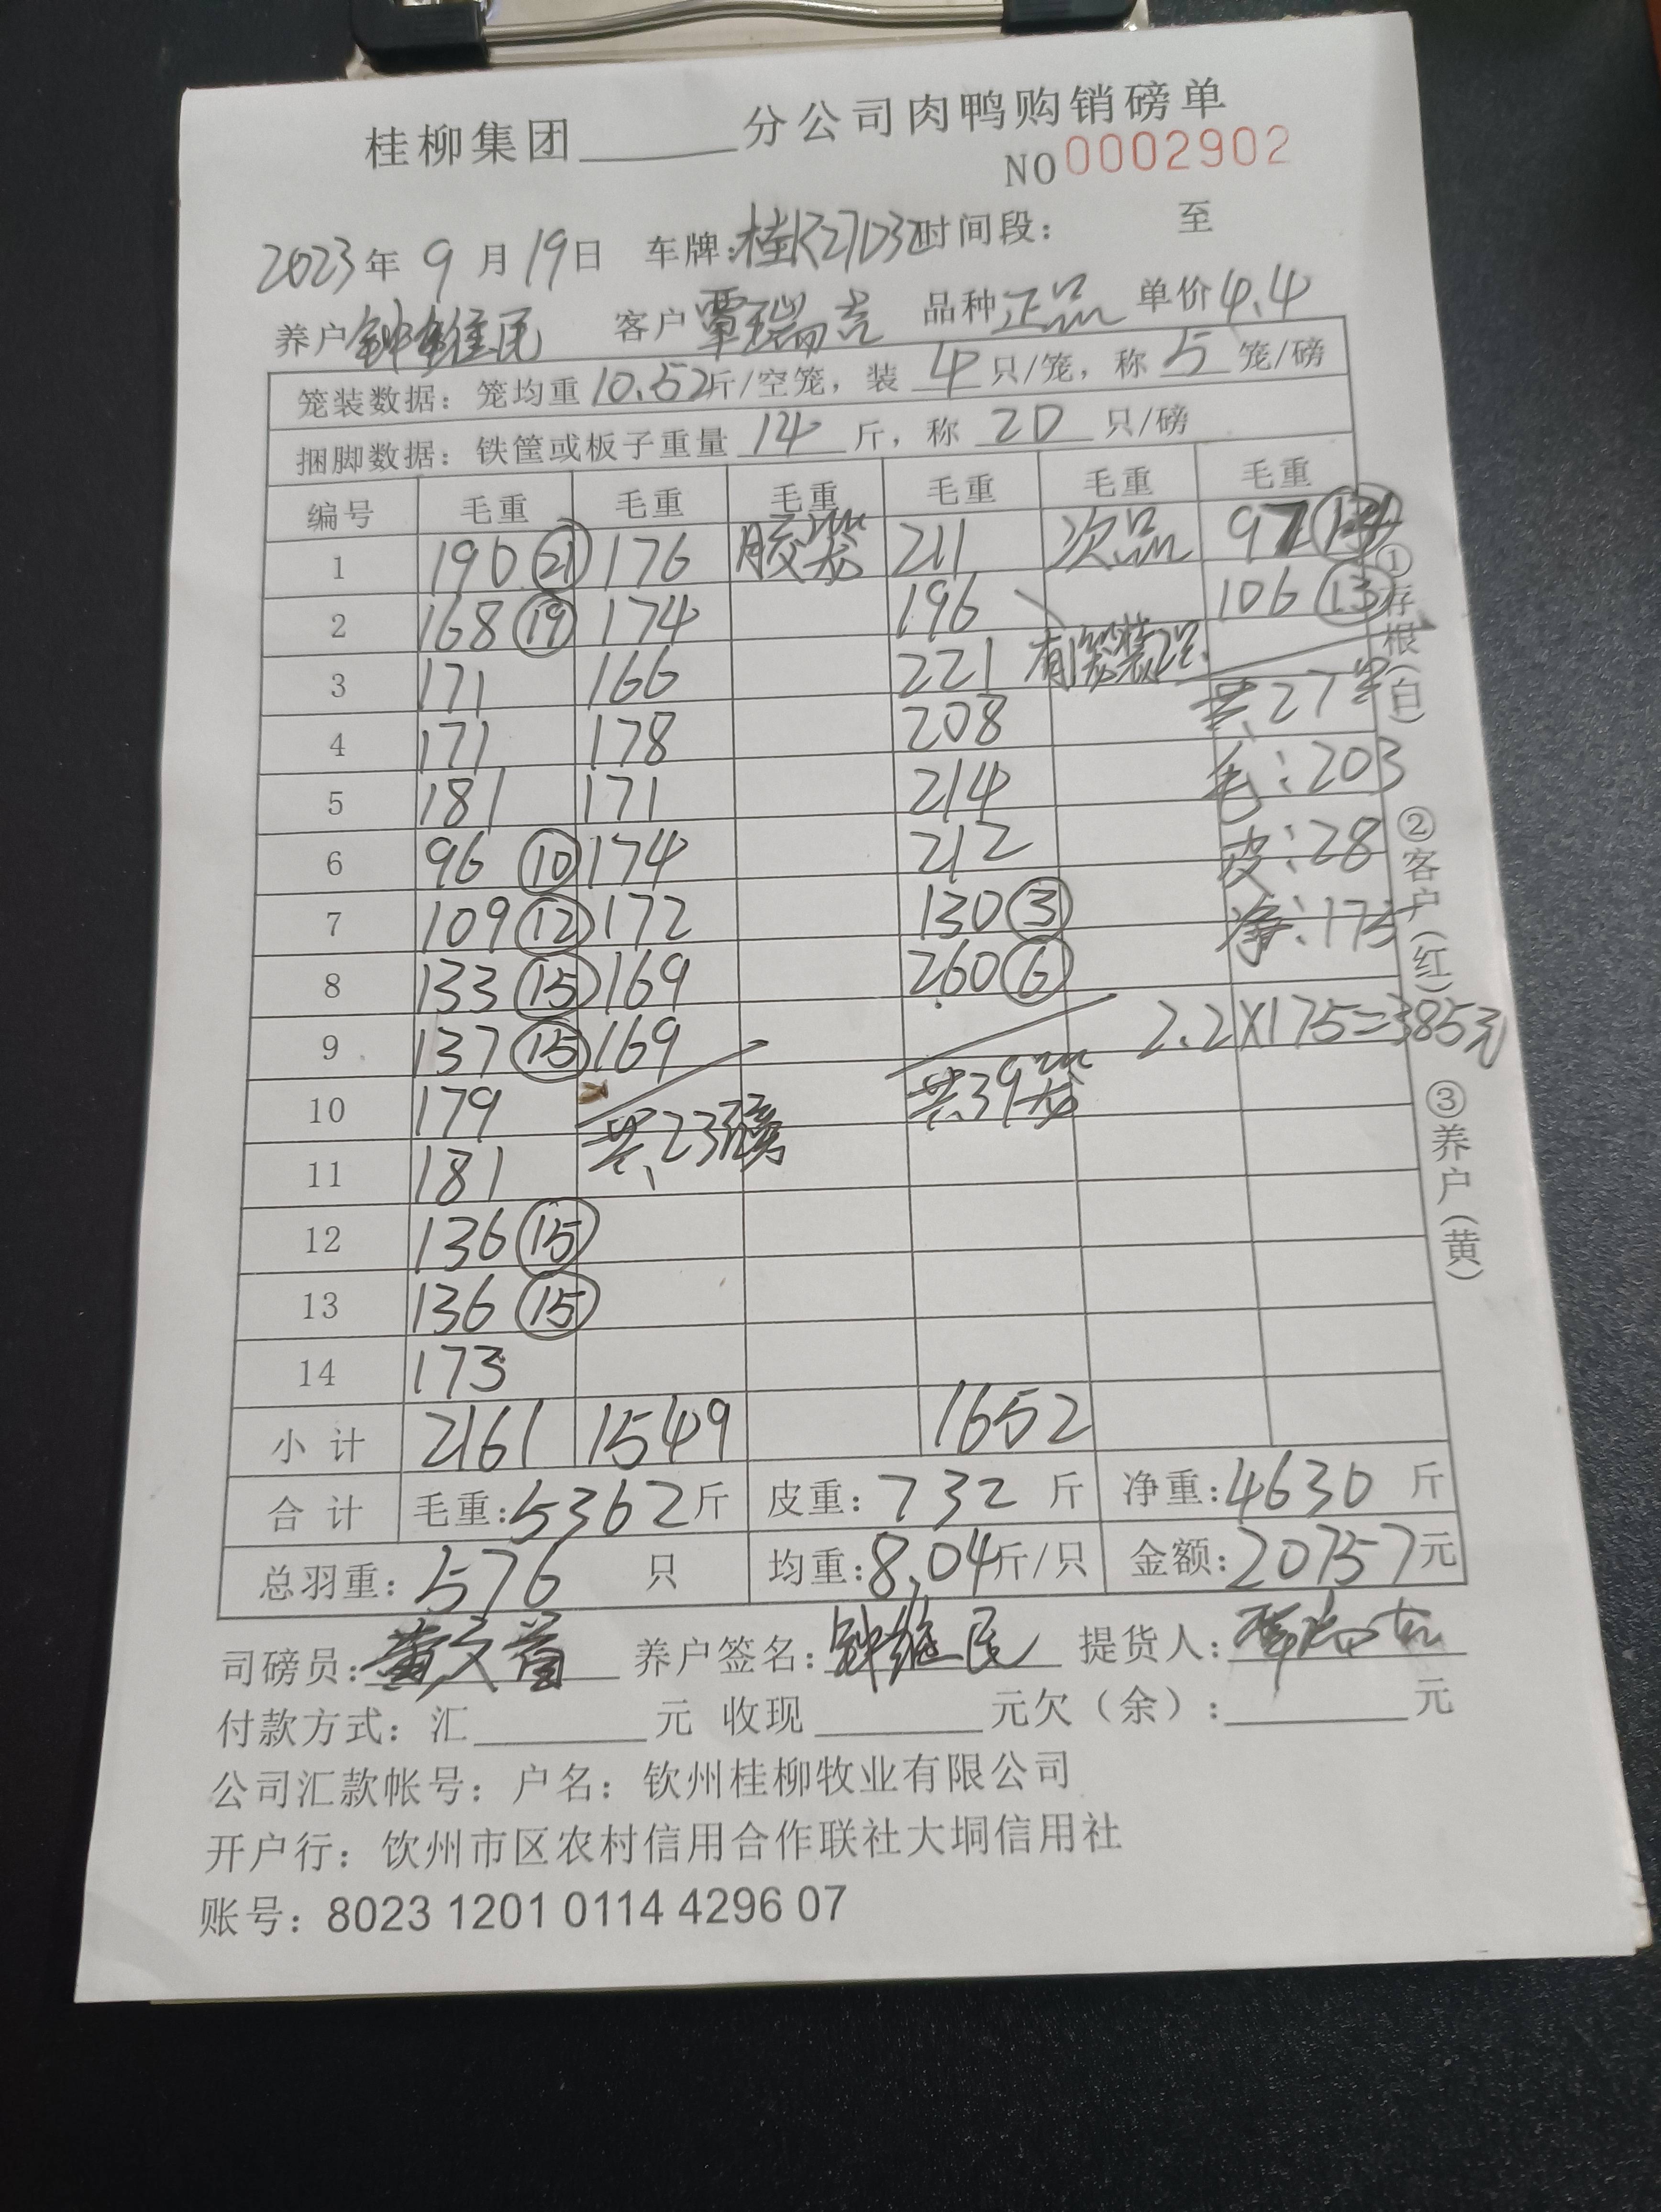 桂柳集团______分公司肉鸭购销磅单
NO 0002902
2023年9月19日 车牌:桂K27D32 时间段: 至
养户 钟继民 客户 覃瑞吉 品种 正品 单价 4.4
笼装数据：笼均重10.52斤/空笼，装 4 只/笼，称 5 笼/磅
捆脚数据：铁筐或板子重量 14 斤，称 20 只/磅
编号 毛重 毛重 毛重 毛重 毛重 毛重
1 190 ㉑ 176 胶笼 211 次品 97 ⑭
2 168 ⑲ 174 196 106 ⑬
3 171 166 221 有笼装2只
4 171 178 208 共27只
5 181 171 214 毛:203
6 96 ⑩ 174 212 皮:28
7 109 ⑫ 172 130 ③ 净:175
8 133 ⑮ 169 260 ⑥
9 137 ⑮ 169 2.2X175=385元
10 179 共23磅 共39笼
11 181
12 136 ⑮
13 136 ⑮
14 173
小计 2161 1549 1652
合计 毛重:5362斤 皮重:732斤 净重:4630斤
总羽重:576 只 均重:8.04斤/只 金额:20757元
司磅员: 养户签名:钟继民 提货人:
付款方式：汇______元 收现______元欠（余）:______元
公司汇款帐号：户名：钦州桂柳牧业有限公司
开户行：饮州市区农村信用合作联社大垌信用社
账号：8023 1201 0114 4296 07
①存根(白)
②客户(红)
③养户(黄)